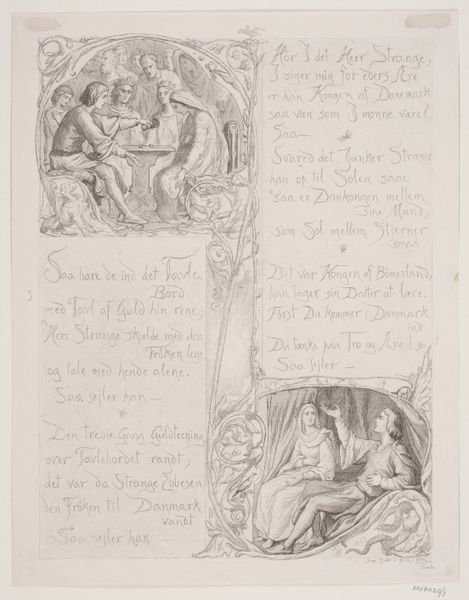 Saa bare de ind det Tavle
Bord
med Tavl af Guld hin rene,
Herr Strange skulde med den
Frøken lege
og tale med hende alene.
Saa sejler han —
Den tredie Gang Guldterning
over Tavlebordet randt,
det var da Strange Ebbesen
den Frøken til Danmark
vandt
Saa sejler han —
Hør I det Herr Strange,
I siger mig for eders Ære
er han Kongen af Danemark
saa væn som I monne være?
Saa —
Svared det Junker Strange
han op til Solen saae:
"saa er Dankongen mellem
sine Mænd,
som Sol mellem Stjerner
smaa
Det var Kongen af Bömerland,
han tager sin Datter at lære.
Först Du kommer i Danmark
ind
Du tænke paa Tro og Ære!
Saa sejler —